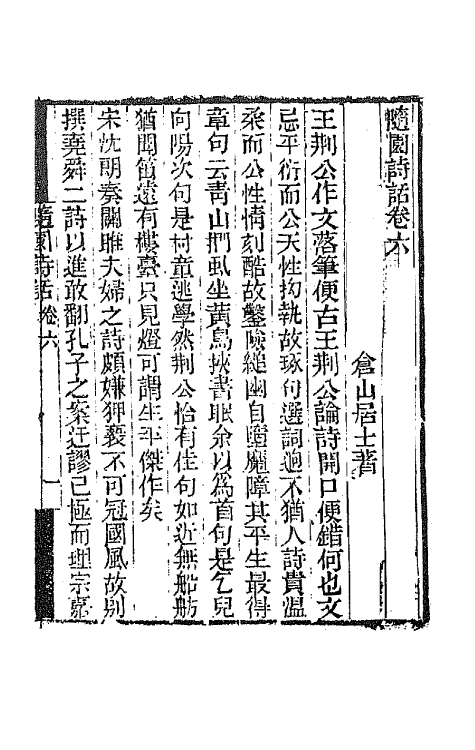 隨園詩話卷六
倉山居士著
王荊公作文落筆便古王荊公論詩開口便錯何也文
忌平衍而公天性拗執故琢句選詞逈不猶人詩貴溫
柔而公性情刻酷故鑿險縋幽自墮魔障其平生最得
意句云青山捫虱坐黃鳥挾書眠余以爲首句是乞兒
向陽次句是村童逃學然荊公恰有佳句如近無船舫
猶聞笛遠有樓臺只見燈可謂生平傑作矣
宋沈朗奏關雎夫婦之詩頗嫌狎褻不可冠國風故別
撰堯舜二詩以進敢翻孔子之案迂謬已極而理宗嘉
隨園詩話 卷六
一